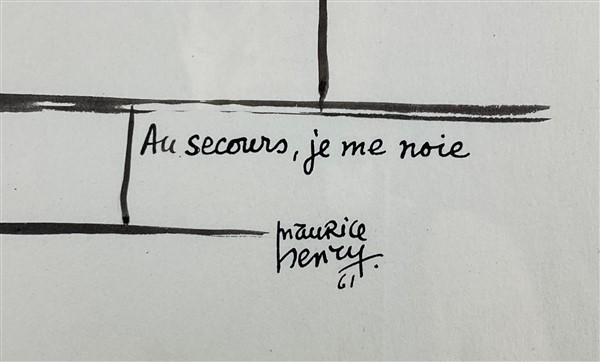 Au secours, je me noie
maurice
henry.
61